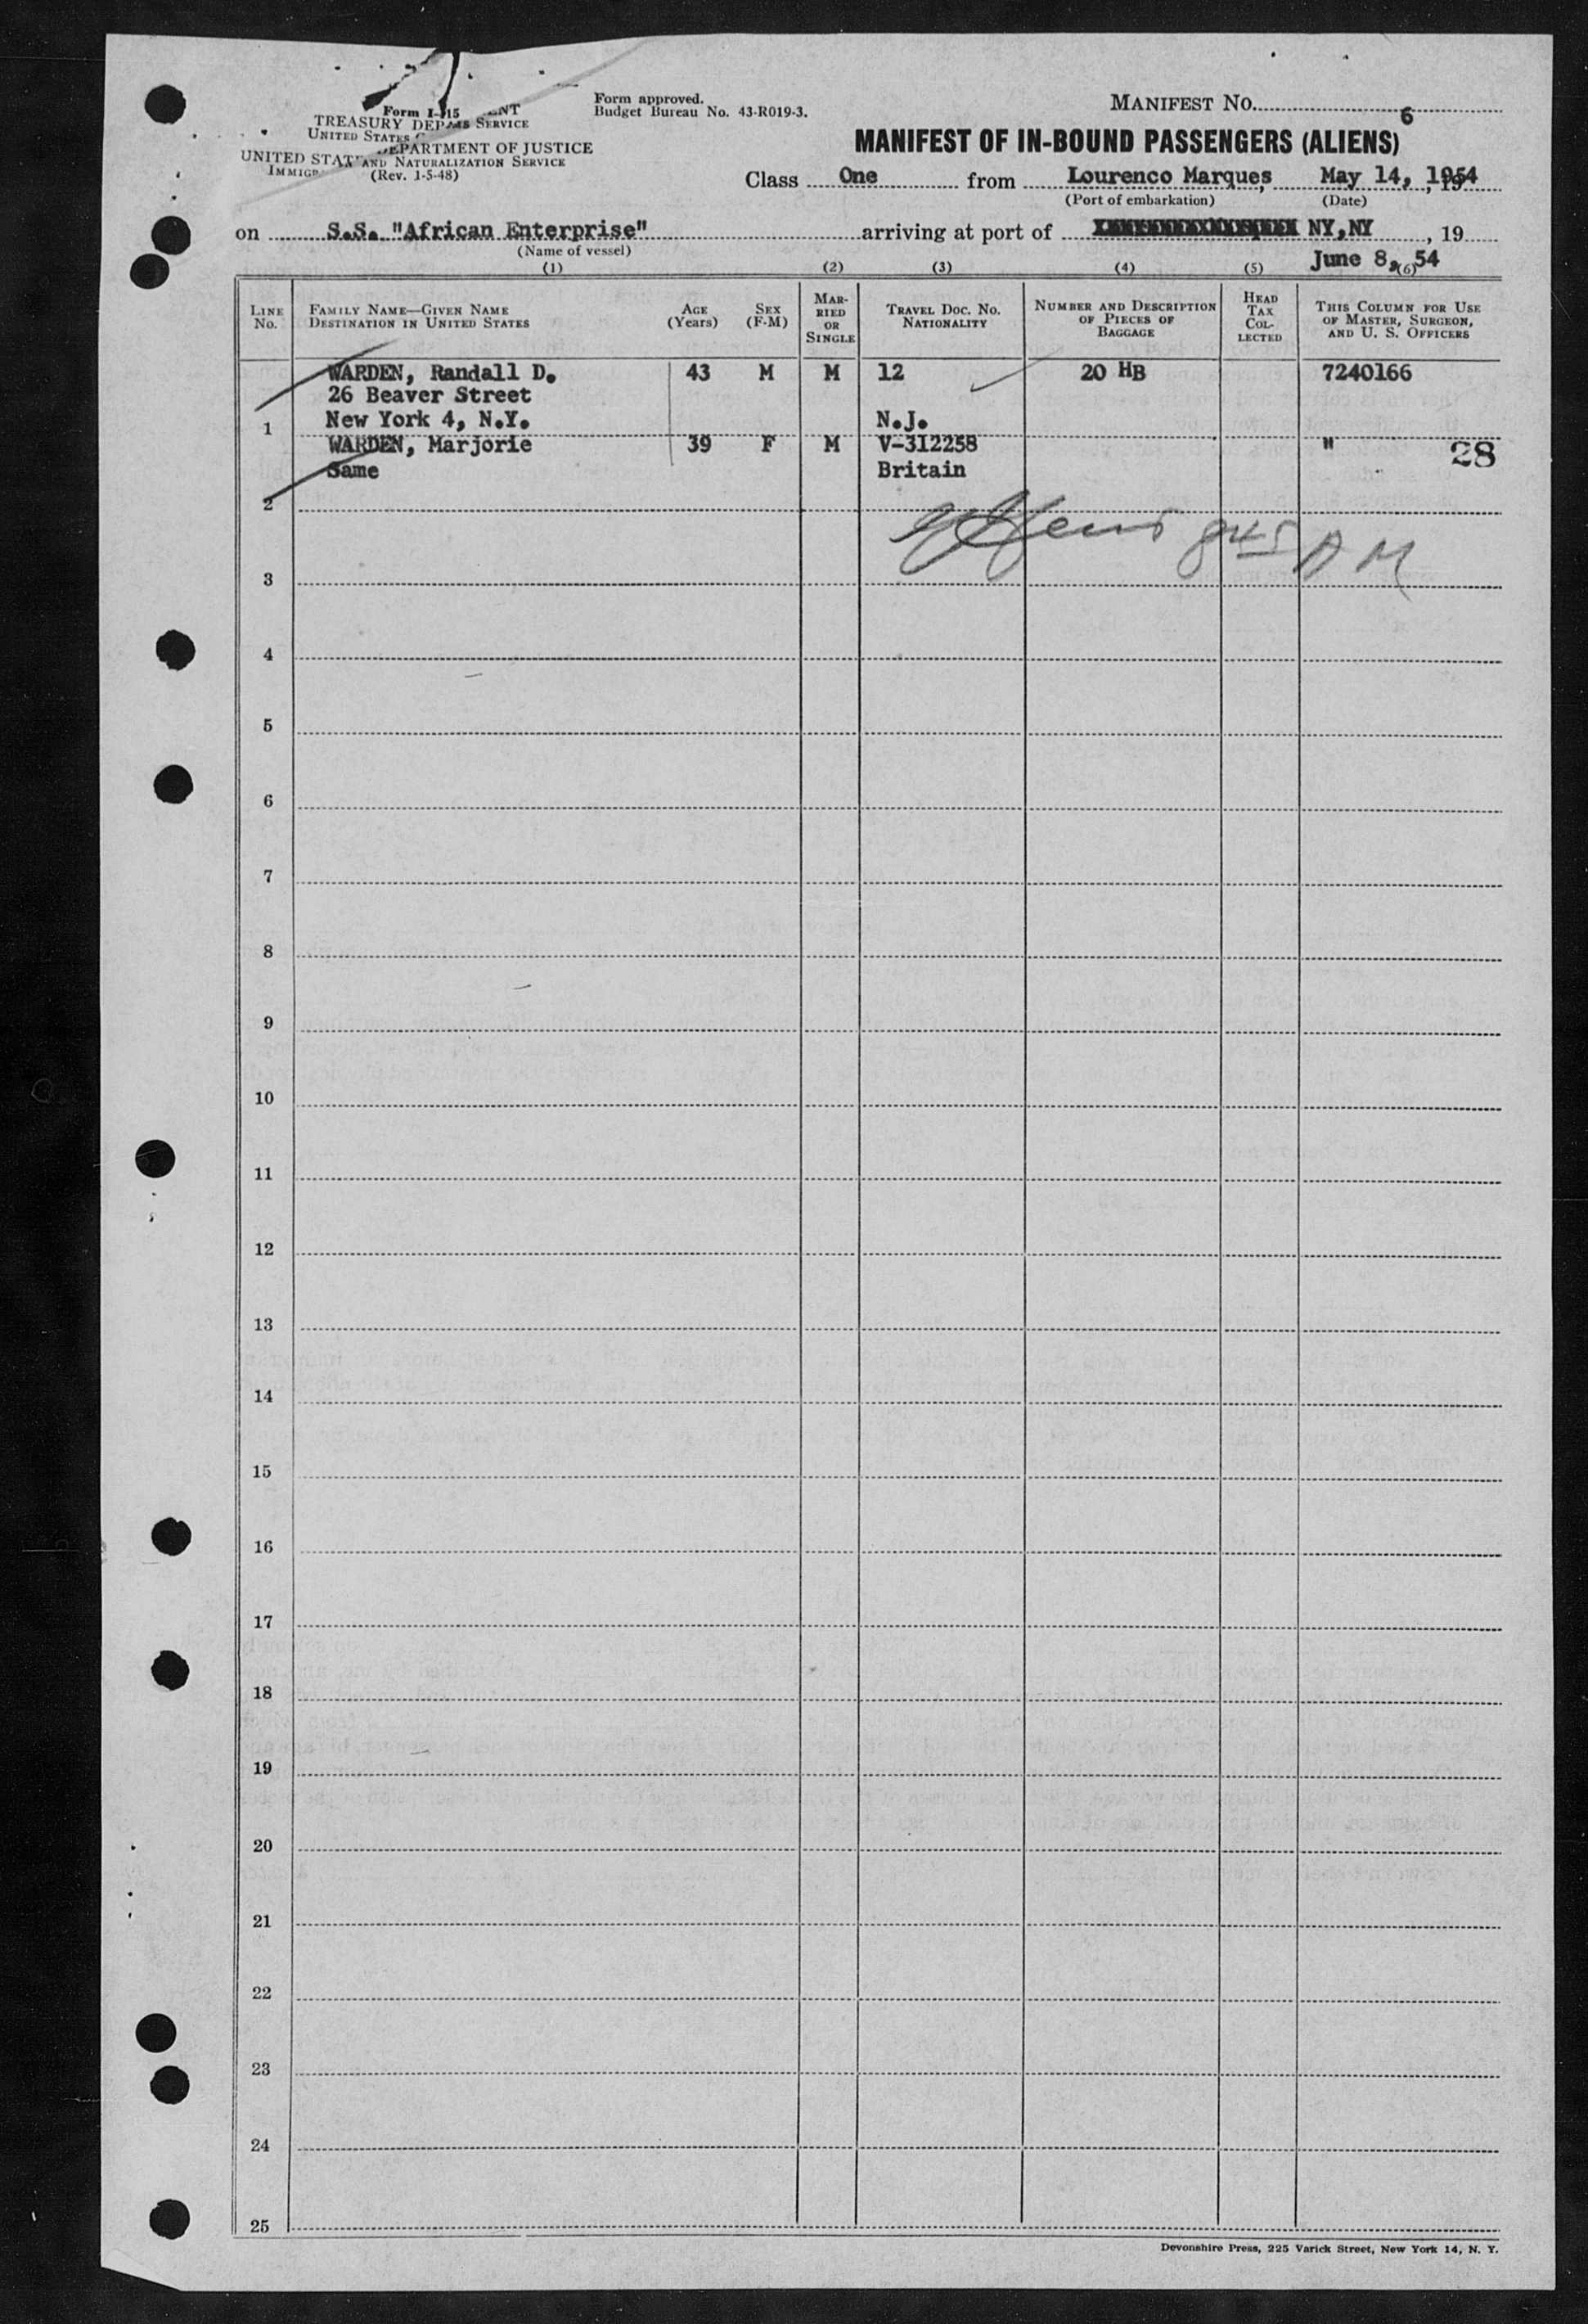 Form I-415
TREASURY DEP
UNITED STATES SERVICE
DEPARTMENT OF JUSTICE
UNITED STAT
IMMIGR AND NATURALIZATION SERVICE
(Rev. 1-5-48)
Form approved.
Budget Bureau No. 43-R019-3.
MANIFEST NO. 6
MANIFEST OF IN-BOUND PASSENGERS (ALIENS)
Class One from Lourenco Marques, May 14, 1954
(Port of embarkation) (Date)
on S.S. "African Enterprise" arriving at port of NY,NY, 19
(Name of vessel)
June 8, 54
(1) (2) (3) (4) (5) (6)
LINE No. FAMILY NAME—GIVEN NAME DESTINATION IN UNITED STATES AGE (Years) SEX (F-M) MARRIED OR SINGLE TRAVEL DOC. NO. NATIONALITY NUMBER AND DESCRIPTION OF PIECES OF BAGGAGE HEAD TAX COLLECTED THIS COLUMN FOR USE OF MASTER, SURGEON, AND U. S. OFFICERS
WARDEN, Randall D. 43 M M 12 20 HB 7240166
26 Beaver Street
1 New York 4, N.Y. N.J.
WARDEN, Marjorie 39 F M V-312258 " 28
Same Britain
2
845 AM
3
4
5
6
7
8
9
10
11
12
13
14
15
16
17
18
19
20
21
22
23
24
25
Devonshire Press, 225 Varick Street, New York 14, N. Y.